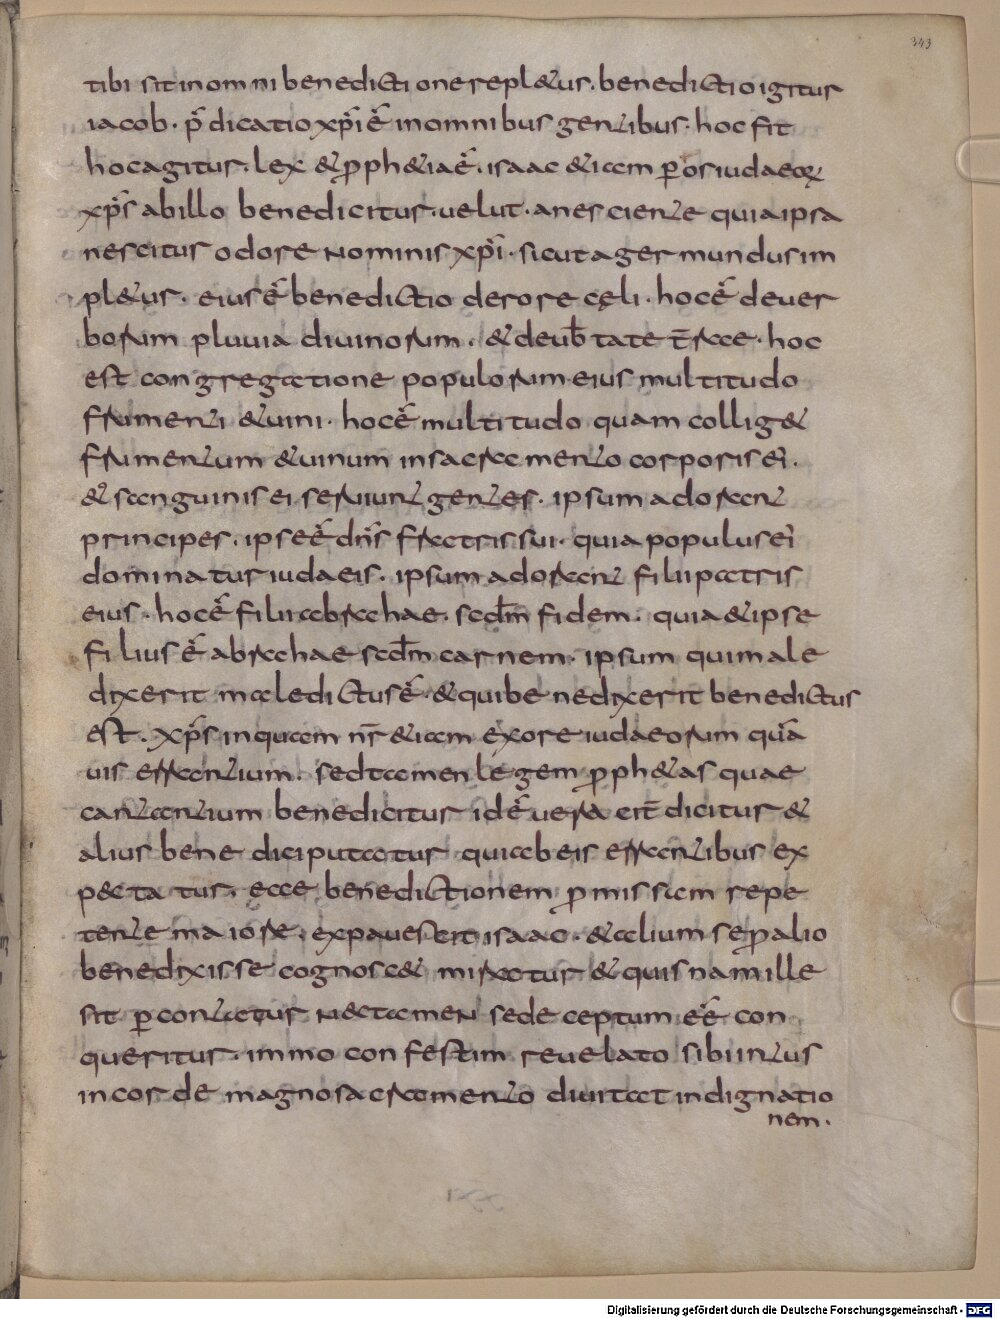 343
tibi sit in omni benedictione repl&us. benedictio igitur
iacob. p̄dicatio xp̄i ē in omnibus gentibus. hoc fit
hoc agitur. lex & proph&ia ē. isaac & iam per os iudaeoꝝ
xp̄s ab illo benedicitur. uelut. a nesciente quia ipsa
nescitur odore nominis xp̄i. sicut ager mundus im
pl&us. eius ē benedictio de rore cęli. hoc ē de uer
borum pluuia diuinorum. & de ub̄tate t̄rae. hoc
est congregatione populorum eius multitudo
frumenti & uini. hoc ē multitudo quam collig&
frumentum & uinum in sacramento corporis ei.
& sanguinis ei seruiunt gentes. ipsum adorant
principes. ipse ē dn̄s fratris sui. quia populus ei
dominatur iudaeis. ipsum adorant filii patris
eius. hoc ē filii abrahae. scdm̄ fidem. quia & ipse
filius ē abrahae scdm̄ carnem. ipsum qui male
dixerit maledictus ē & qui benedixerit benedictus
est. xp̄s inquam nr̄ & iam ex ore iudaeorum quā
uis errantium. sed tamen legem proph&as quae
cantantium benedicitur id ē uera cit̄ dicitur &
alius benedici putatur qui ab eis errantibus ex
pectatur. ecce benedictionem promissam repe
tente maiore. expauescit isaac. & alium se pro alio
benedixisse cognosc& miratur & quisnam ille
sit percontatur nec tamen se deceptum eē con
queritur. immo confestim reuelato sibi intus
in corde magno sacramento diuitat indignatio
nem.
Digitalisierung gefördert durch die Deutsche Forschungsgemeinschaft - DFG